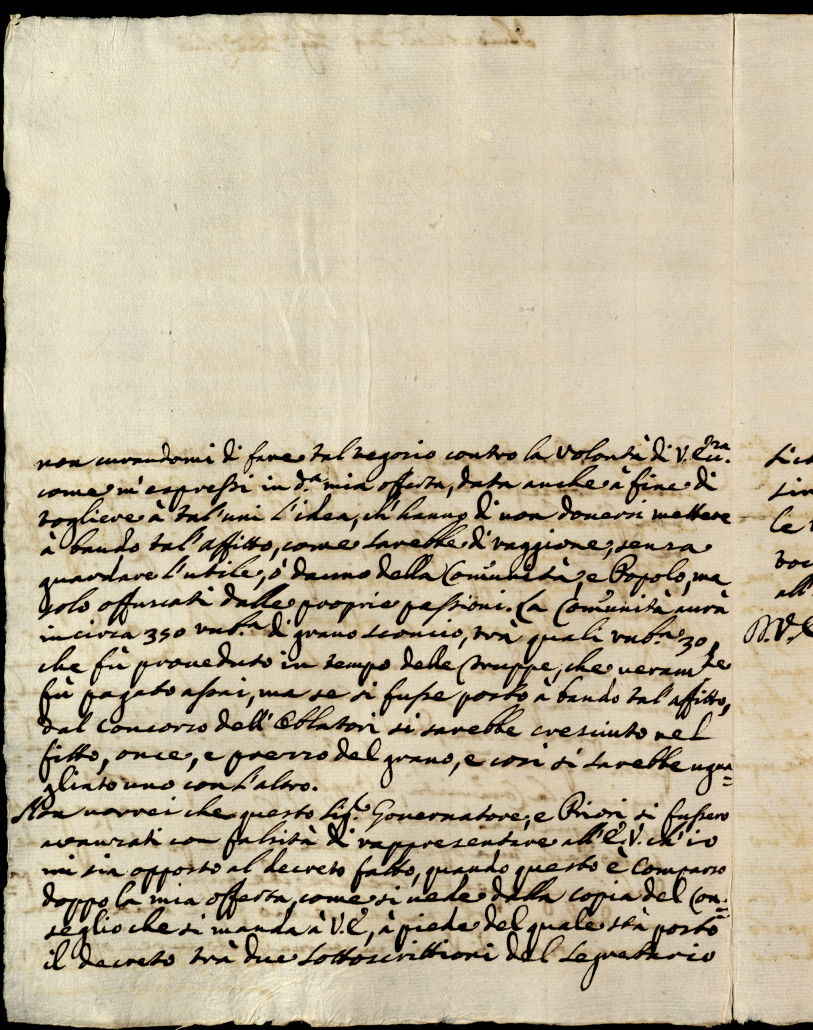 non curandomi di fare tal negozio contro la volontà di V. Ecc. vra
come m'espressi in d.a mia offerta, data anche à fine di
togliere à tal'uni l'idea, ch'hanno di non doversi mettere
à bando tal'affitto, come sarebbe di raggione, senza
guardare l'utile, ò danno della Com̃unità, e Popolo, ma
solo offuscati dalle proprie passioni. La Com̃unità avrà
incirca 350 rub.a di grano sconcio, trà quali rub.a 30,
che fù proveduto in tempo delle Truppe, che veram.te
fù pagato assai, ma se si fusse posto à bando tal affitto,
dal concorso dell'Oblatori si sarebbe cresciuto nel
fitto, once, e prezzo del grano, e così si sarebbe ugua=
gliato uno con l'altro.
Non vorrei che questo Sig.r Governatore, e Priori si fussero
avanzati con falsità di rappresentare all'E. V. ch'io
mi sia opposto al decreto fatto, quando questo è comparso
doppo la mia offerta, come si vede dalla copia del Con=
seglio che si manda à V. E, à piede del quale stà posto
il decreto trà due sottoscrittioni del Segretario